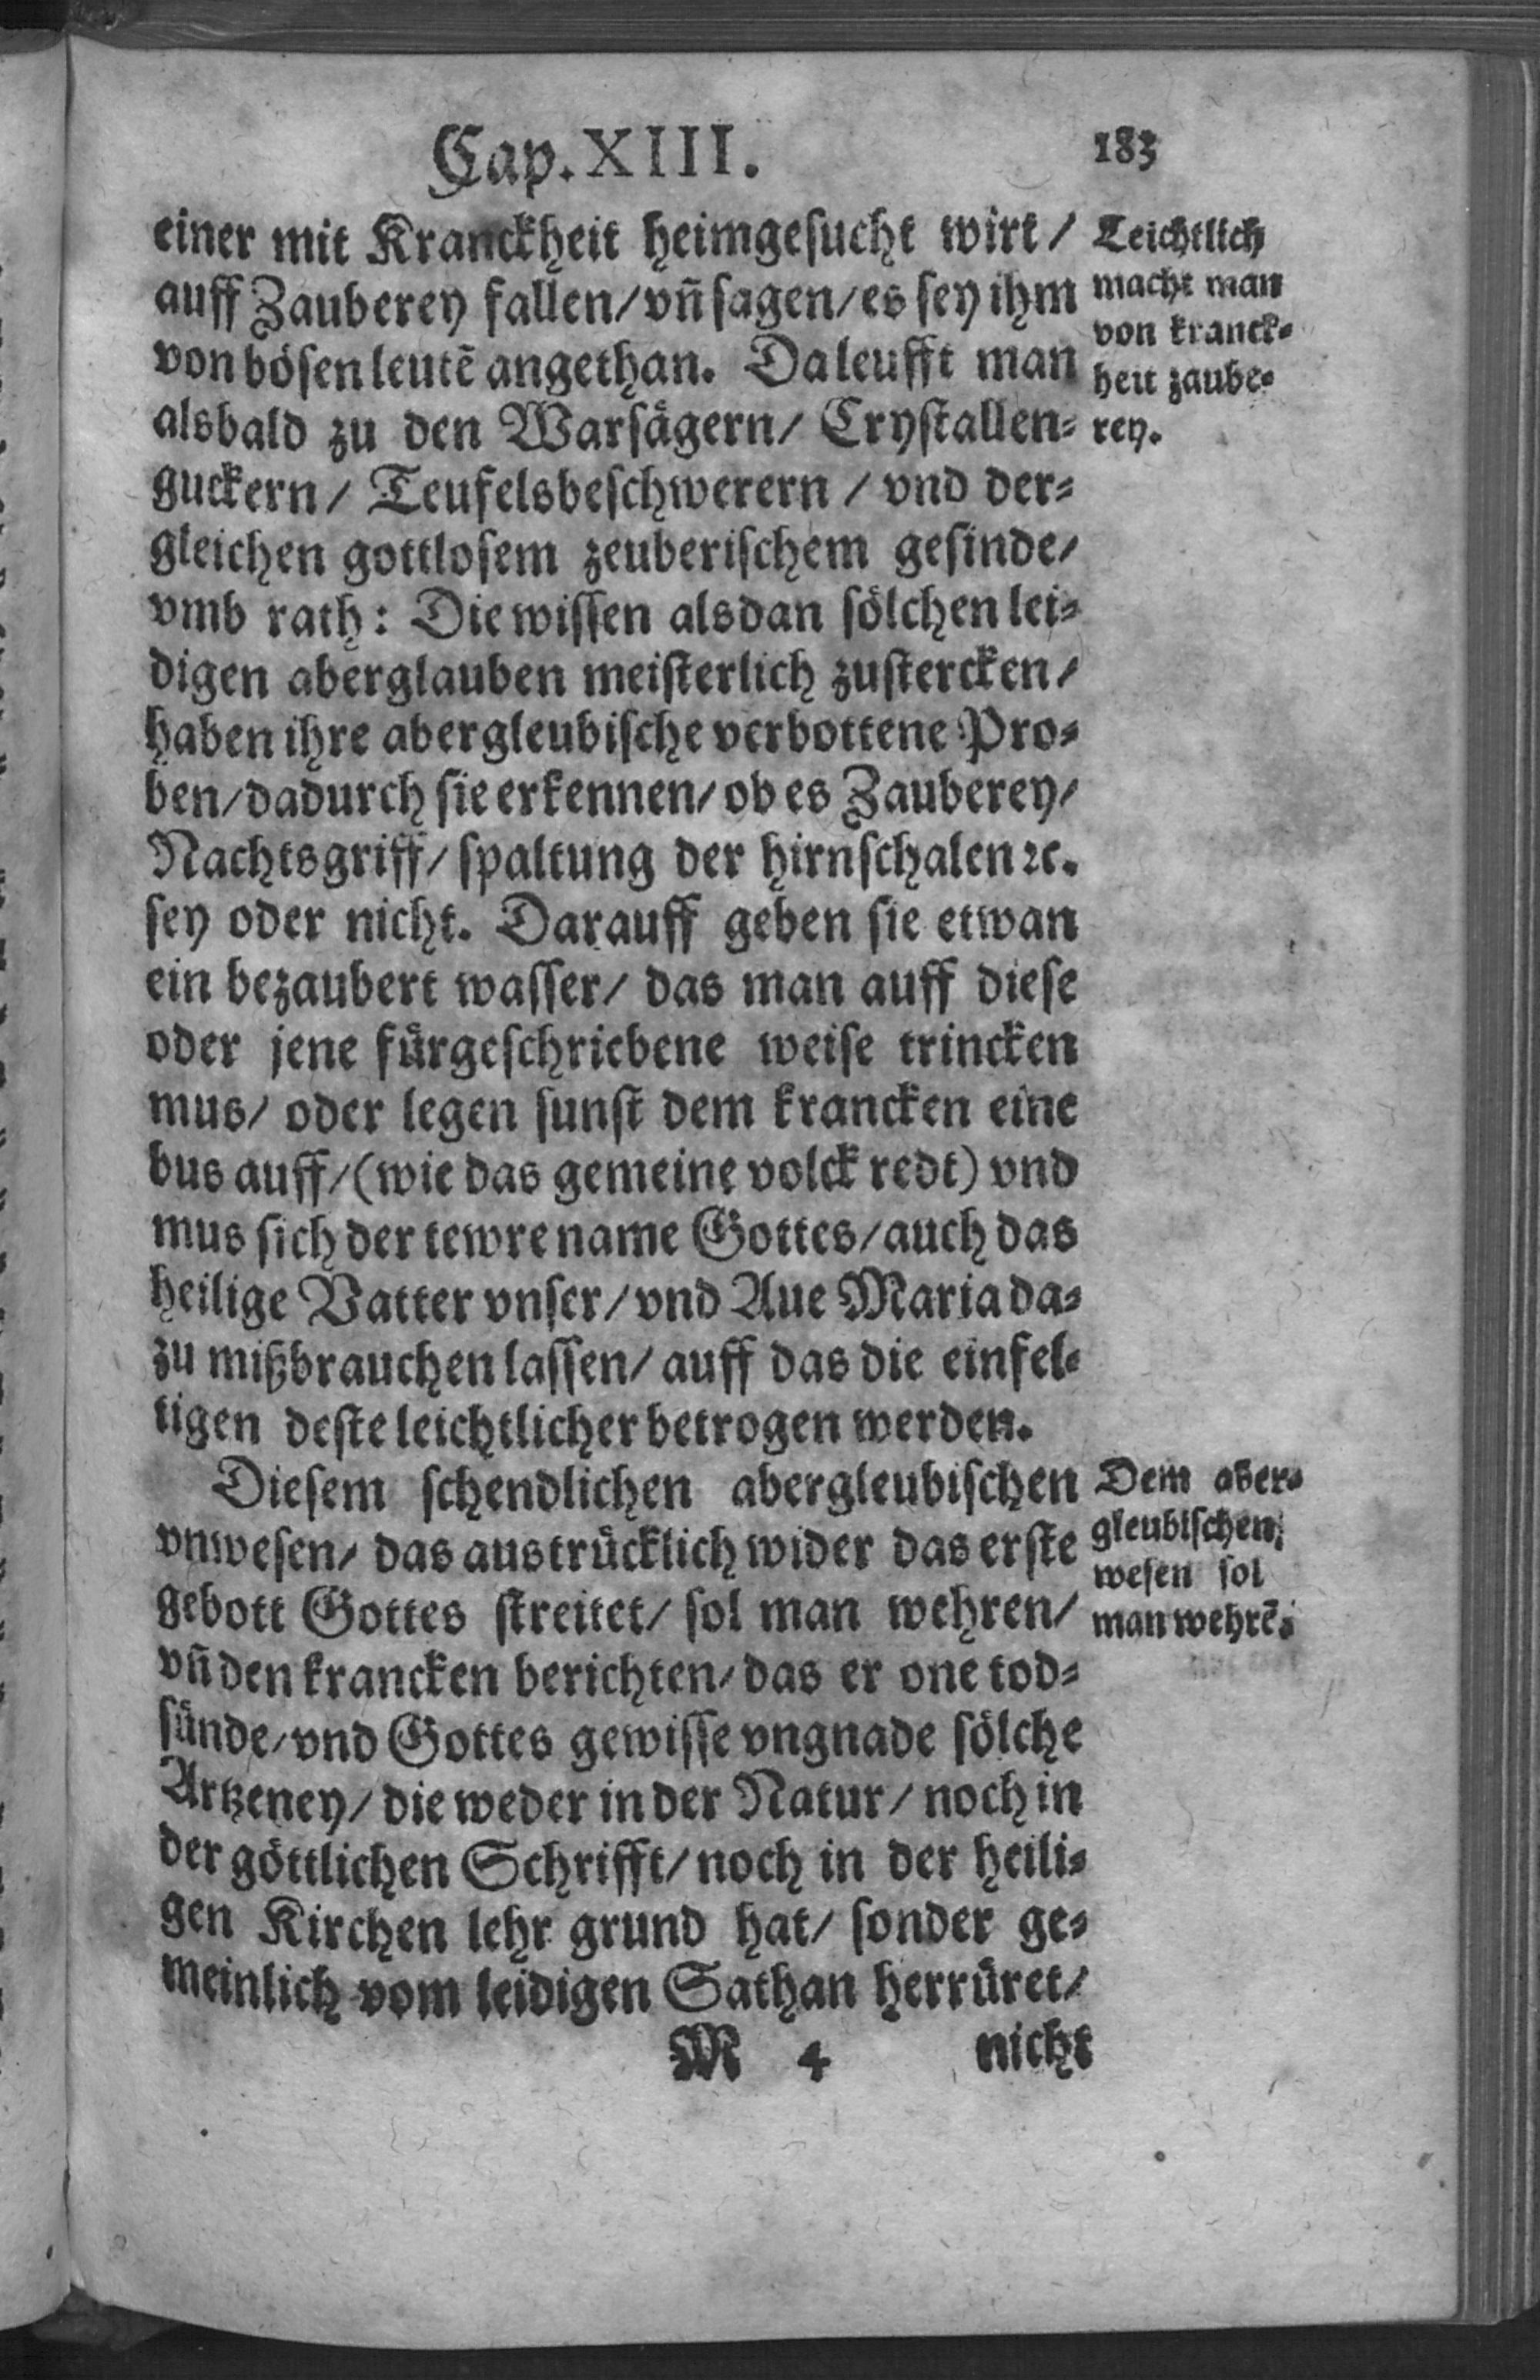 Cap. XIII.
183
einer mit Kranckheit heimgesucht wirt/
auff Zauberey fallen/ vñ sagen/ es sey ihm
von bösen leutẽ angethan. Da leufft man
alsbald zu den Warsägern/ Crystallen-
guckern/ Teufelsbeschwerern / vnd der-
gleichen gottlosem zeuberischem gesinde/
vmb rath: Die wissen alsdan sölchen lei-
digen aberglauben meisterlich zustercken/
haben ihre abergleubische verbottene Pro-
ben/ dadurch sie erkennen/ ob es Zauberey/
Nachtsgriff/ spaltung der hirnschalen ꝛc.
sey oder nicht. Darauff geben sie etwan
ein bezaubert wasser/ das man auff diese
oder jene fürgeschriebene weise trincken
mus/ oder legen sunst dem krancken eine
bus auff/ (wie das gemeine volck redt) vnd
mus sich der tewre name Gottes/ auch das
heilige Vatter vnser/ vnd Aue Maria da-
zu mißbrauchen lassen/ auff das die einfel-
tigen deste leichtlicher betrogen werden.
Diesem schendlichen abergleubischen
vnwesen/ das austrücklich wider das erste
gebott Gottes streitet/ sol man wehren/
vñ den krancken berichten/ das er one tod-
sünde/ vnd Gottes gewisse vngnade sölche
Artzeney/ die weder in der Natur/ noch in
der göttlichen Schrifft/ noch in der heili-
gen Kirchen lehr grund hat/ sonder ge-
meinlich vom leidigen Sathan herrüret/
M 4
nicht
Leichtlich
macht man
von kranck-
heit zaube-
rey.
Dem aber-
gleubischen
wesen sol
man wehrẽ.